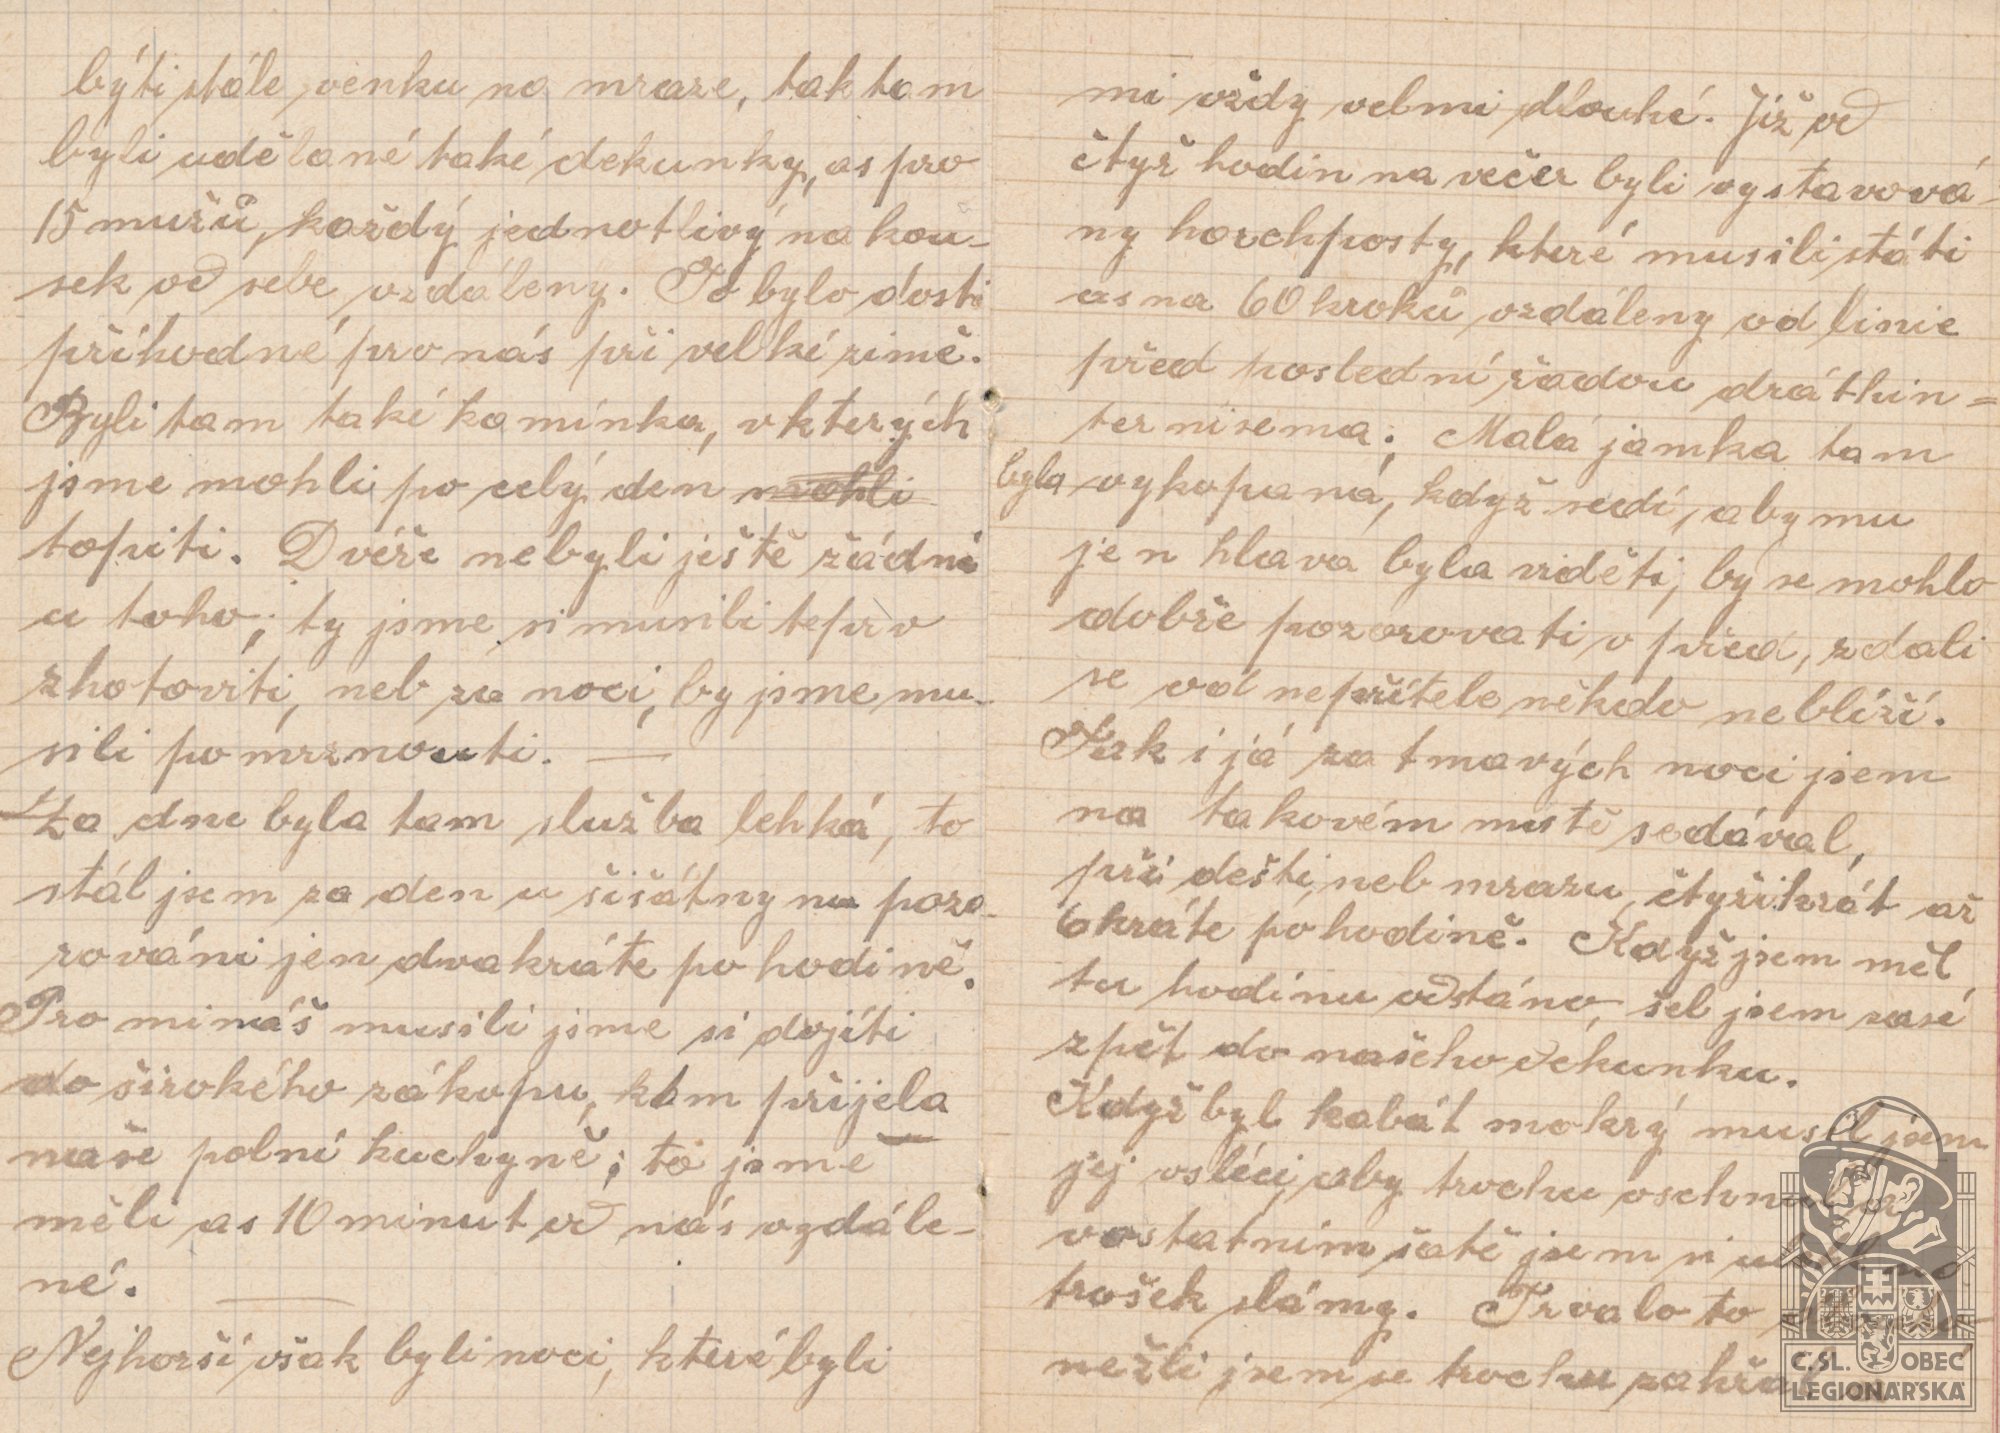 býti stále venku na mraze, tak tam
byli udělané také dekunky, as pro
15 mužů, každý jednotlivý na kou-
sek od sebe vzdáleny. To bylo dosti
příhodné pro nás při velké zimě.
Byli tam také kamínka, v kterých
jsme mohli po celý den mohli
topiti. Dvéře nebyli ještě žádné
u toho, ty jsme si musili teprv
zhotoviti, neb za noci, by jsme mu-
sili pomrznouti. —
Za dne byla tam služba lehká, to
stál jsem za den u šišátny na pozo-
rováni jen dvakráte po hodině.
Pro mináš musili jsme si dojíti
do širokého zákopu, kam přijela
naše polní kuchyně; to jsme
měli as 10 minut od nás vzdále-
né.
Nejhorší však byli noci, které byli
mi vždy velmi dlouhé. Již od
čtyř hodin na večer byli vystavová-
ny horchposty, které musili státi
as na 60 kroků vzdáleny od linie
před poslední řadou dráthin=
ternisema. Malá jamka tam
byla vykopaná, když sedí, aby mu
jen hlava byla viděti, by se mohlo
dobře pozorovati v před, zdali
se od nepřítele někdo neblíží.
Tak i já za tmavých noci jsem
na takovém mistě sedával,
při dešti, neb mrazu, čtyřikrát až
6 kráte po hodině. Když jsem měl
tu hodinu odstáno, šel jsem zasé
zpět do našeho dekunku.
Když byl kabát mokrý musel jsem
jej vsléci, aby trochu oschnul a
v ostatním šatě jsem si
trošek slámy. Trvalo to
nežli jsem se trochu zahřál
Č.SL. OBEC
LEGIONÁŘSKÁ